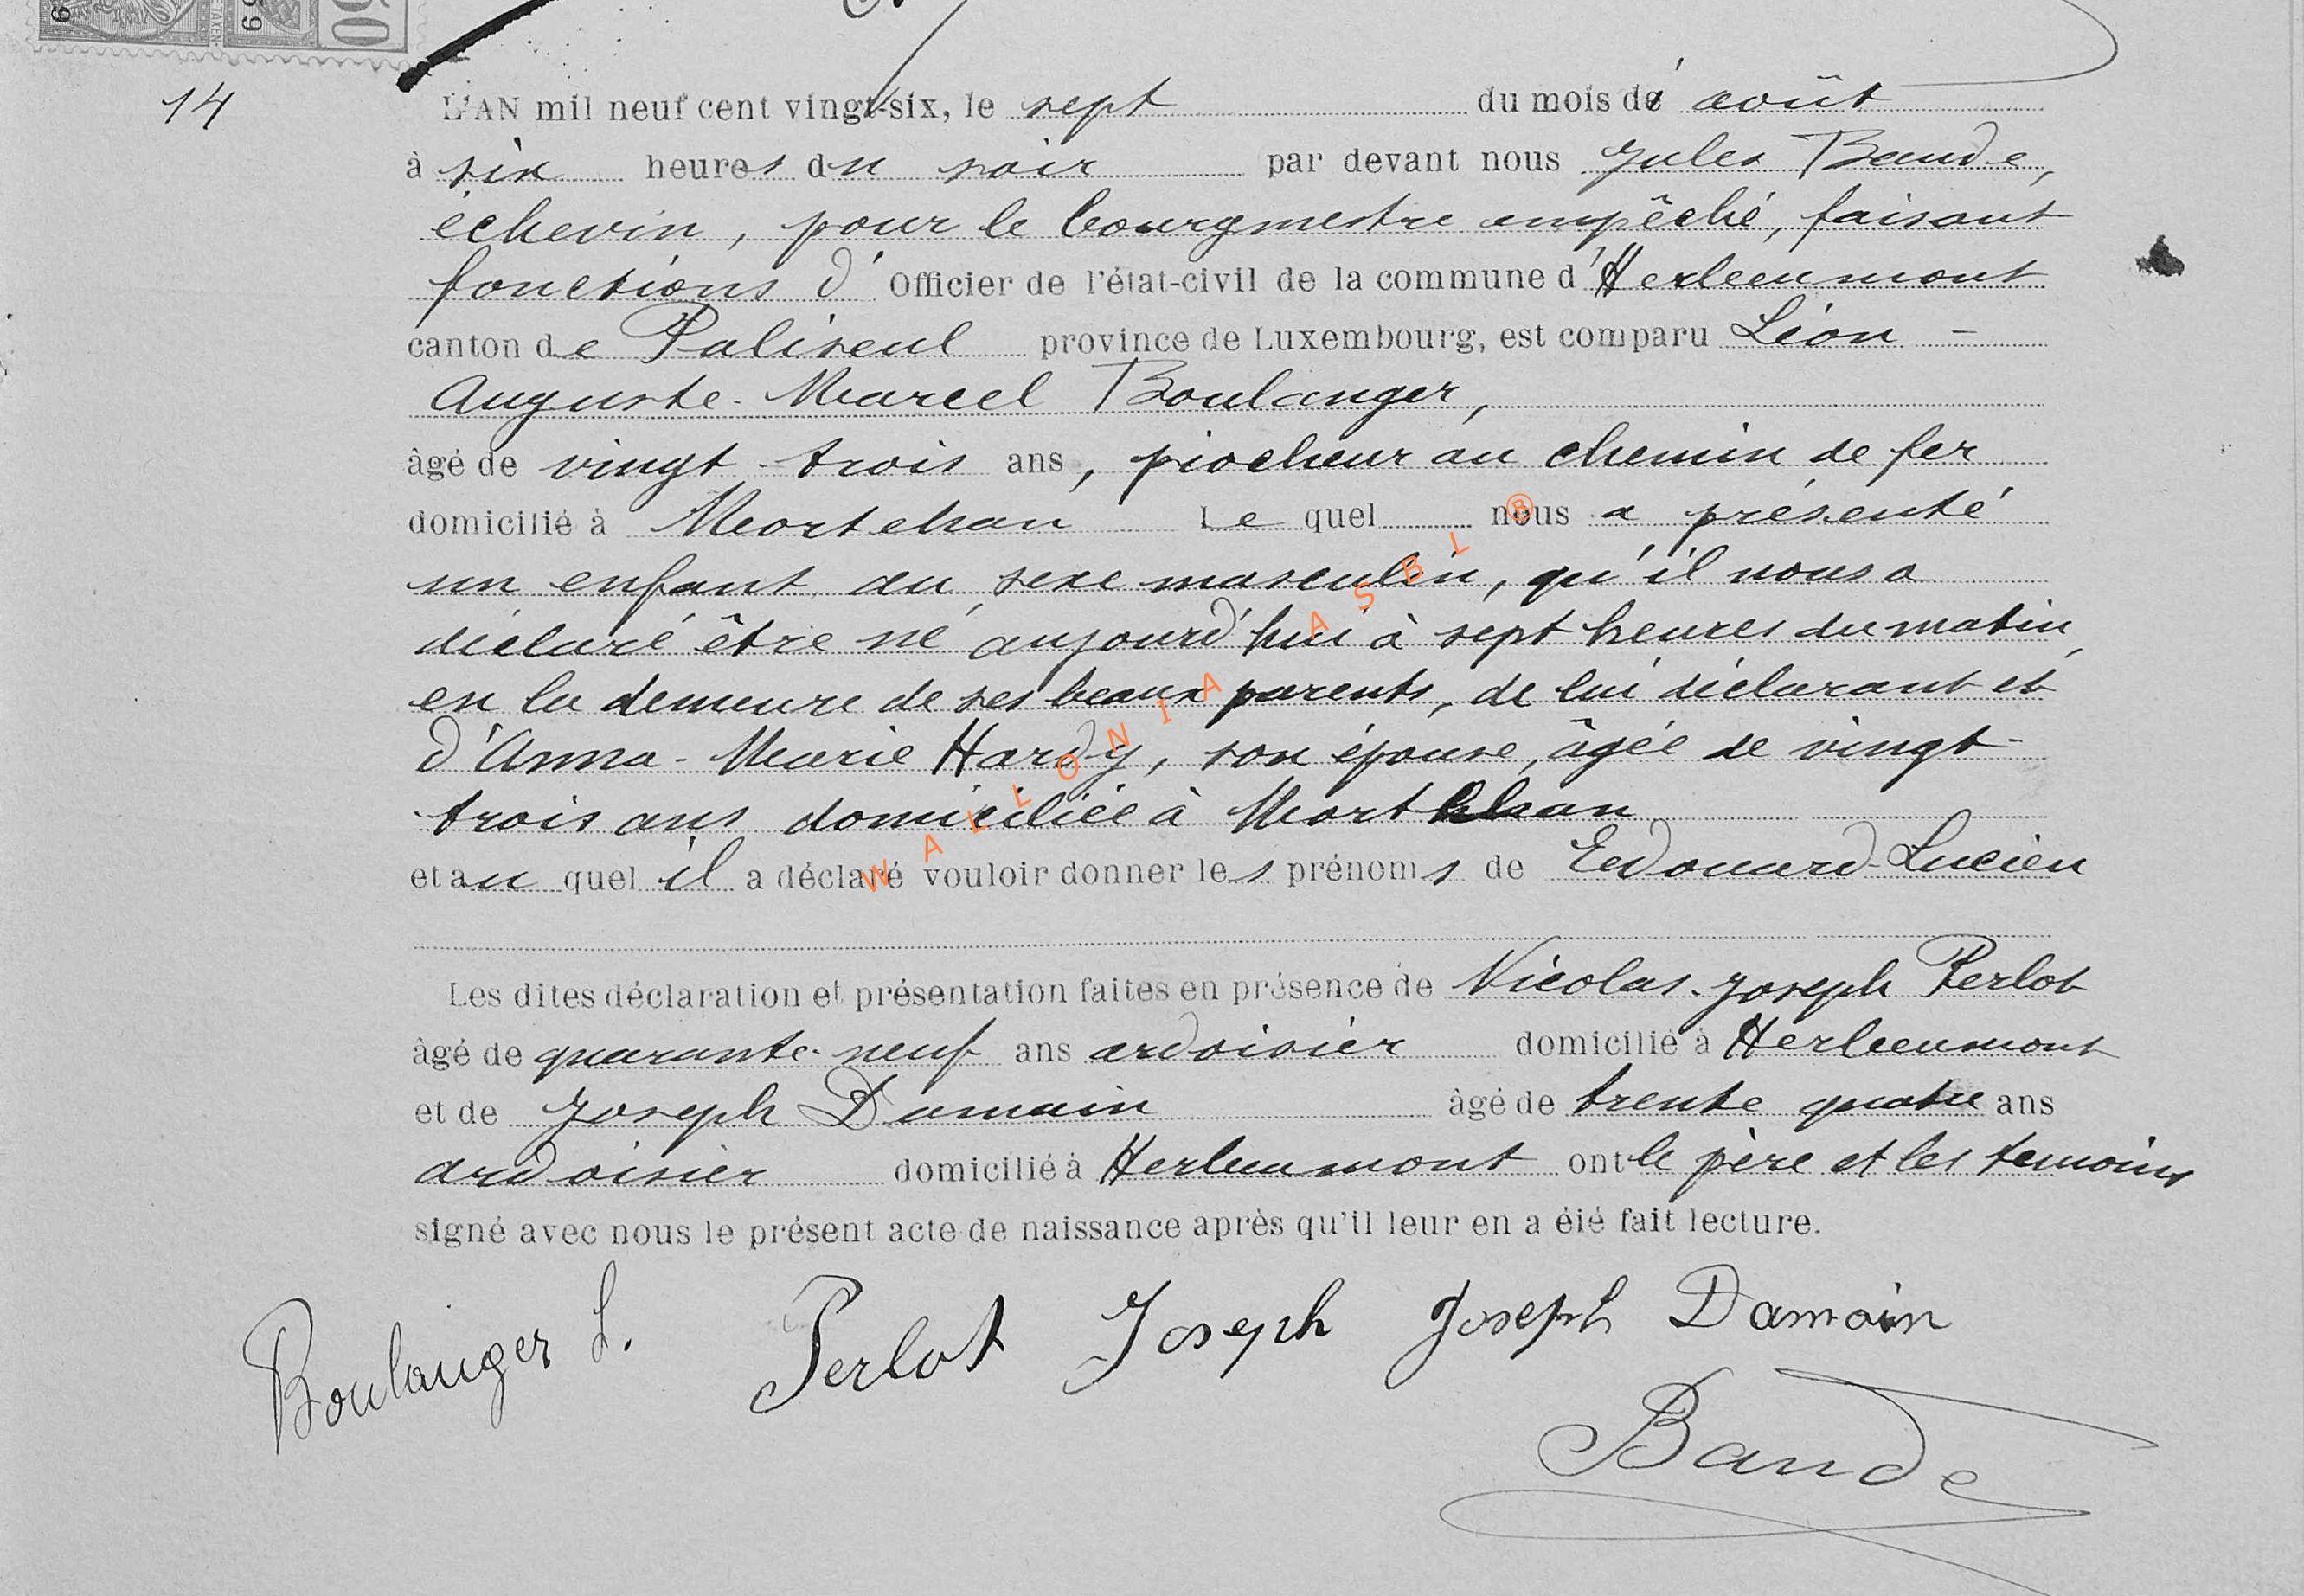 14
L'AN mil neuf cent vingt-six, le sept du mois dé août
à six heures du soir par devant nous Jules Baude,
échevin, pour le bourgmestre empêché, faisant
fonctions d' Officier de l'état-civil de la commune d'Herbeumont
canton de Paliseul province de Luxembourg, est comparu Léon -
Auguste-Marcel Boulanger,
âgé de vingt-trois ans, piocheur au chemin de fer
domicilié à Mortehan Le quel nous a présenté
un enfant du sexe masculin, qu'il nous a
déclaré être né aujourd'hui à sept heures du matin,
en la demeure de ses beaux parents, de lui déclarant et
d'Anna-Marie Hardy, son épouse, âgée de vingt-
trois ans domiciliée à Mortehan
et au quel il a déclaré vouloir donner les prénoms de Edouard-Lucien
Les dites déclaration et présentation faites en présence de Nicolas-Joseph Perlot
âgé de quarante-neuf ans ardoisier domicilié à Herbeumont
et de Joseph Damain âgé de trente quatre ans
ardoisier domicilié à Herbeumont ont le père et les temoins
signé avec nous le présent acte de naissance après qu'il leur en a été fait lecture.
Boulanger L. Perlot Joseph Joseph Damain
Baude
WALLONIA ASBL ®